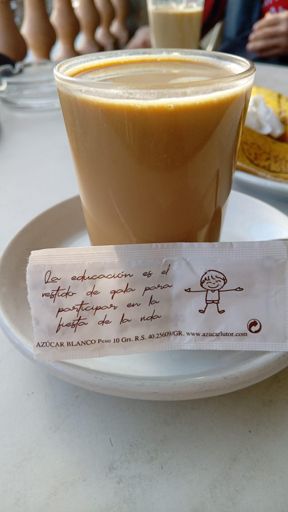 La educación es el
vestido de gala para
participar en la
fiesta de la vida
AZÚCAR BLANCO Peso 10 Grs. R.S. 40.25609/GR. www.azucarlutor.com